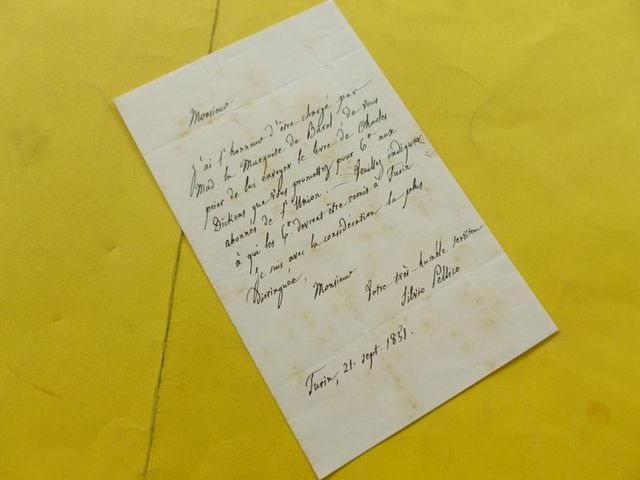 Monsieur
J'ai l'honneur d'être chargé par
Mad. la Marquise de Barol de vous
prier de lui envoyer le livre de Charles
Dickens que vous promettez pour 6 fr aux
abonnés de l'Union. — Veuillez indiquer
à qui les 6 fr devront être remis à Turin
Je suis avec la considération la plus
Distinguée,
Monsieur
Votre très-humble serviteur
Silvio Pellico
Turin, 21. sept. 1851.